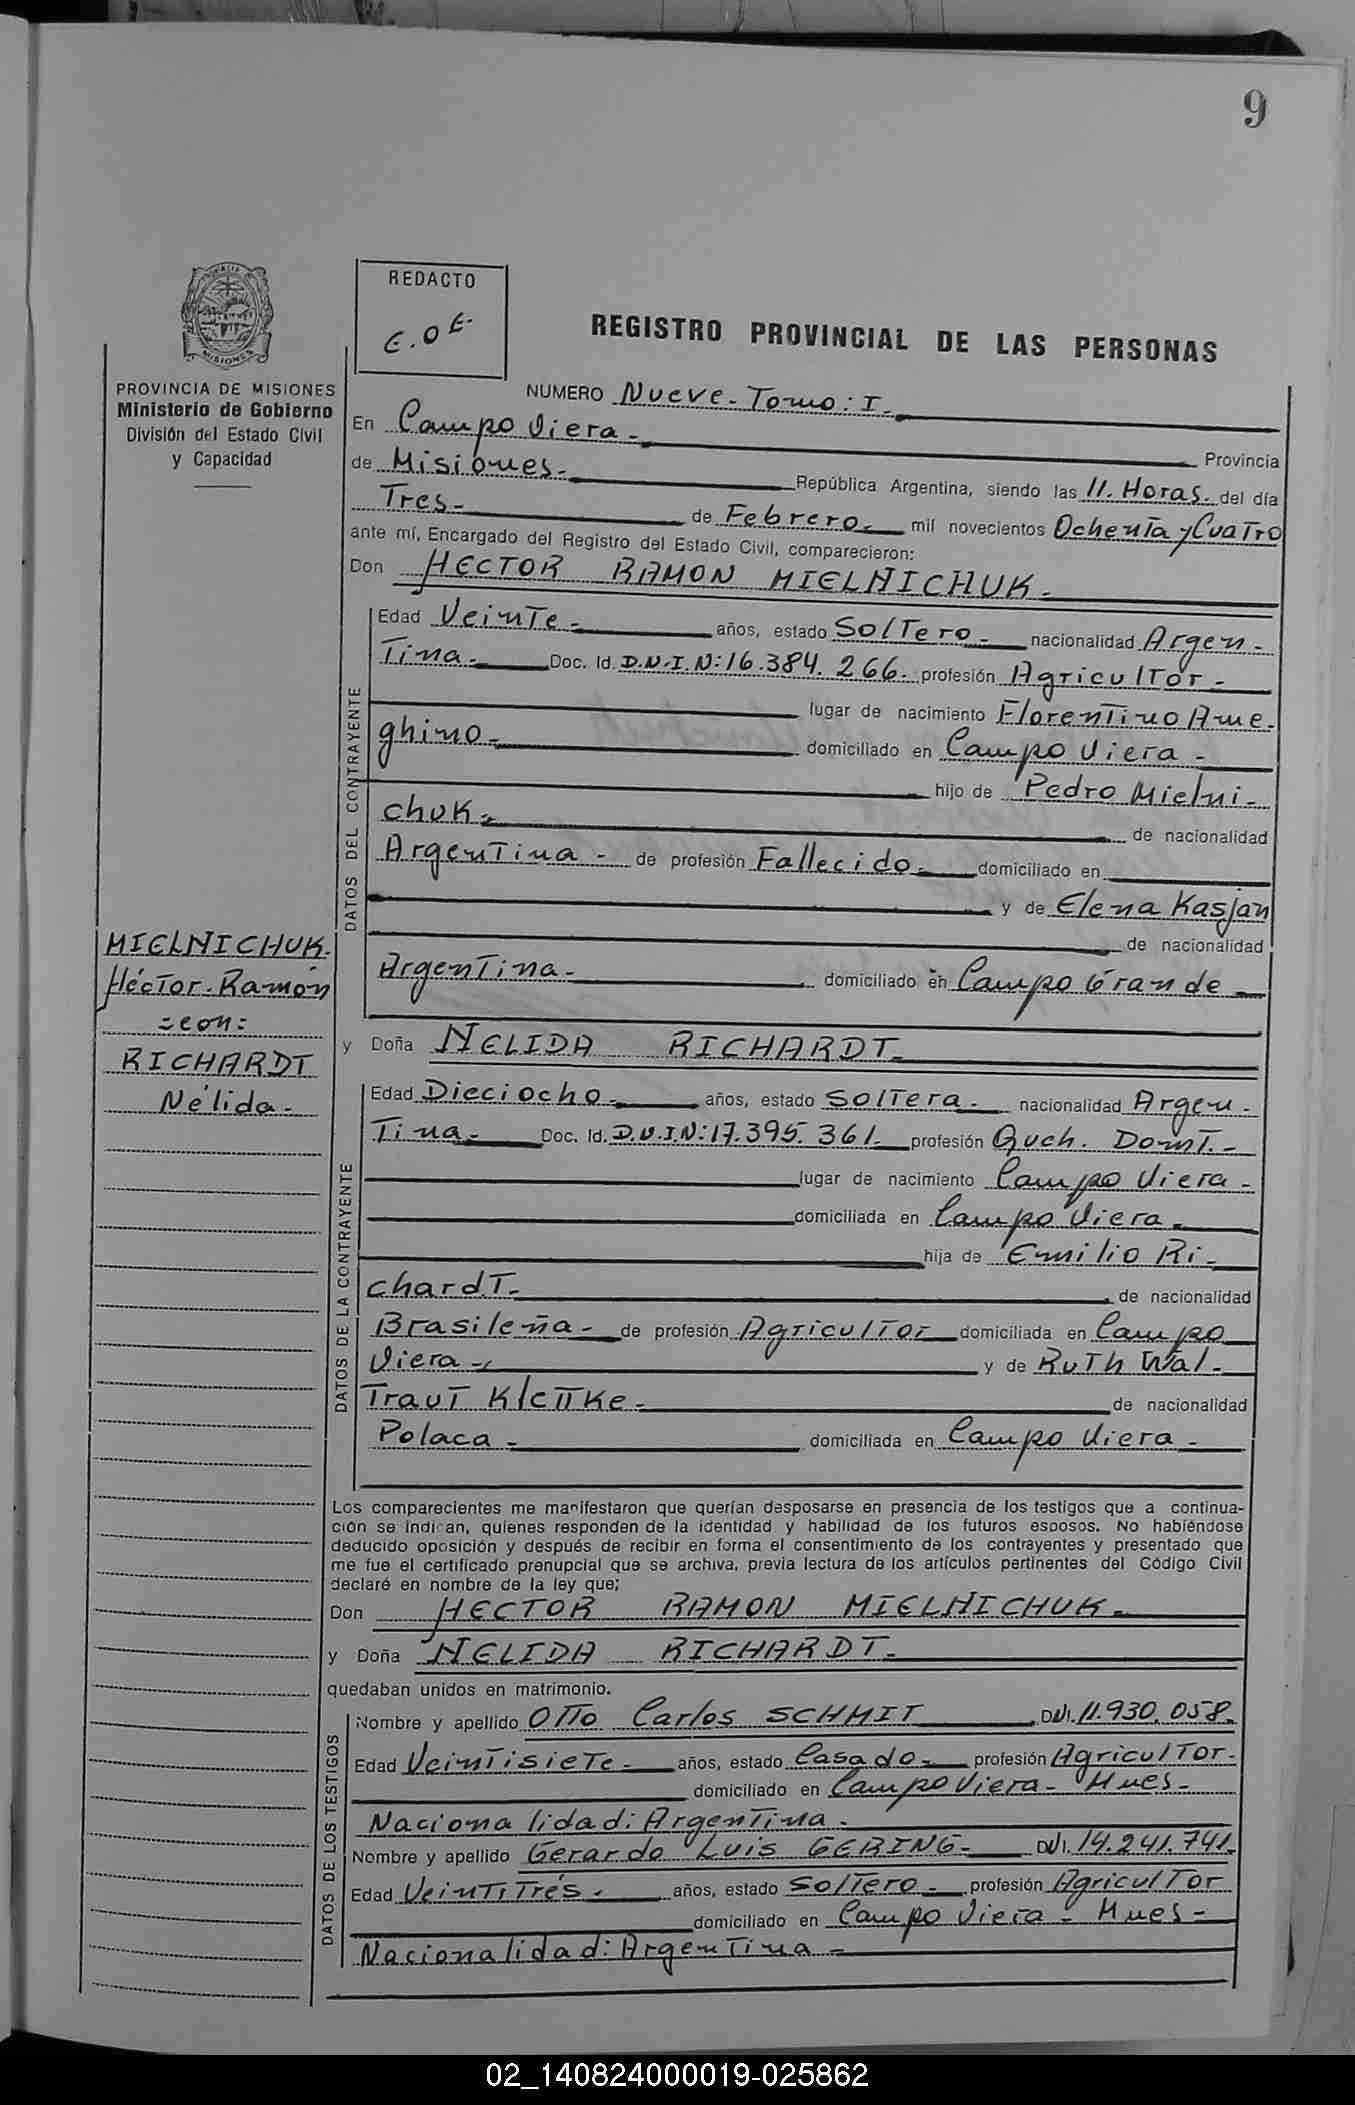 9
PROVINCIA DE MISIONES
MISIONES
PROVINCIA DE MISIONES
Ministerio de Gobierno
División del Estado Civil
y Capacidad
REDACTO
E.O.E.
REGISTRO PROVINCIAL DE LAS PERSONAS
NUMERO Nueve-Tomo: I.
En Campo Viera- Provincia
de Misiones- República Argentina, siendo las 11.Horas. del día
Tres- de Febrero- mil novecientos Ochenta y Cuatro
ante mí, Encargado del Registro del Estado Civil, comparecieron:
Don HECTOR RAMON MIELNICHUK-
DATOS DEL CONTRAYENTE
Edad Veinte- años, estado Soltero- nacionalidad Argen-
tina- Doc. Id. D.N.I.N:16.384.266- profesión Agricultor-
lugar de nacimiento Florentino Ame-
ghino- domiciliado en Campo Viera-
hijo de Pedro Mielni-
chuk- de nacionalidad
Argentina- de profesión Fallecido- domiciliado en
y de Elena Kasjan
de nacionalidad
Argentina- domiciliado en Campo Grande-
MIELNICHUK-
Héctor-Ramón
=con=
RICHARDT
Nélida-
y Doña NELIDA RICHARDT-
DATOS DE LA CONTRAYENTE
Edad Dieciocho- años, estado Soltera- nacionalidad Argen-
tina- Doc. Id. D.N.I.N:17.395.361- profesión Queh. Domt.-
lugar de nacimiento Campo Viera-
domiciliada en Campo Viera-
hija de Emilio Ri-
chardt- de nacionalidad
Brasileña- de profesión Agricultor domiciliada en Campo
Viera- y de Ruth Wal-
traut Klettke- de nacionalidad
Polaca- domiciliada en Campo Viera-
Los comparecientes me manifestaron que querían desposarse en presencia de los testigos que a continua-
ción se indican, quienes responden de la identidad y habilidad de los futuros esposos. No habiéndose
deducido oposición y después de recibir en forma el consentimiento de los contrayentes y presentado que
me fue el certificado prenupcial que se archiva, previa lectura de los artículos pertinentes del Código Civil
declaré en nombre de la ley que;
Don HECTOR RAMON MIELNICHUK-
y Doña NELIDA RICHARDT-
quedaban unidos en matrimonio.
DATOS DE LOS TESTIGOS
Nombre y apellido Otto Carlos SCHMIT DNI.11.930.058-
Edad Veintisiete- años, estado Casado- profesión Agricultor-
domiciliado en Campo Viera- Mnes-
Nacionalidad: Argentina-
Nombre y apellido Gerardo Luis GERING- DNI.14.241.741-
Edad Veintitrés- años, estado Soltero- profesión Agricultor
domiciliado en Campo Viera- Mnes-
Nacionalidad: Argentina-
02_140824000019-025862